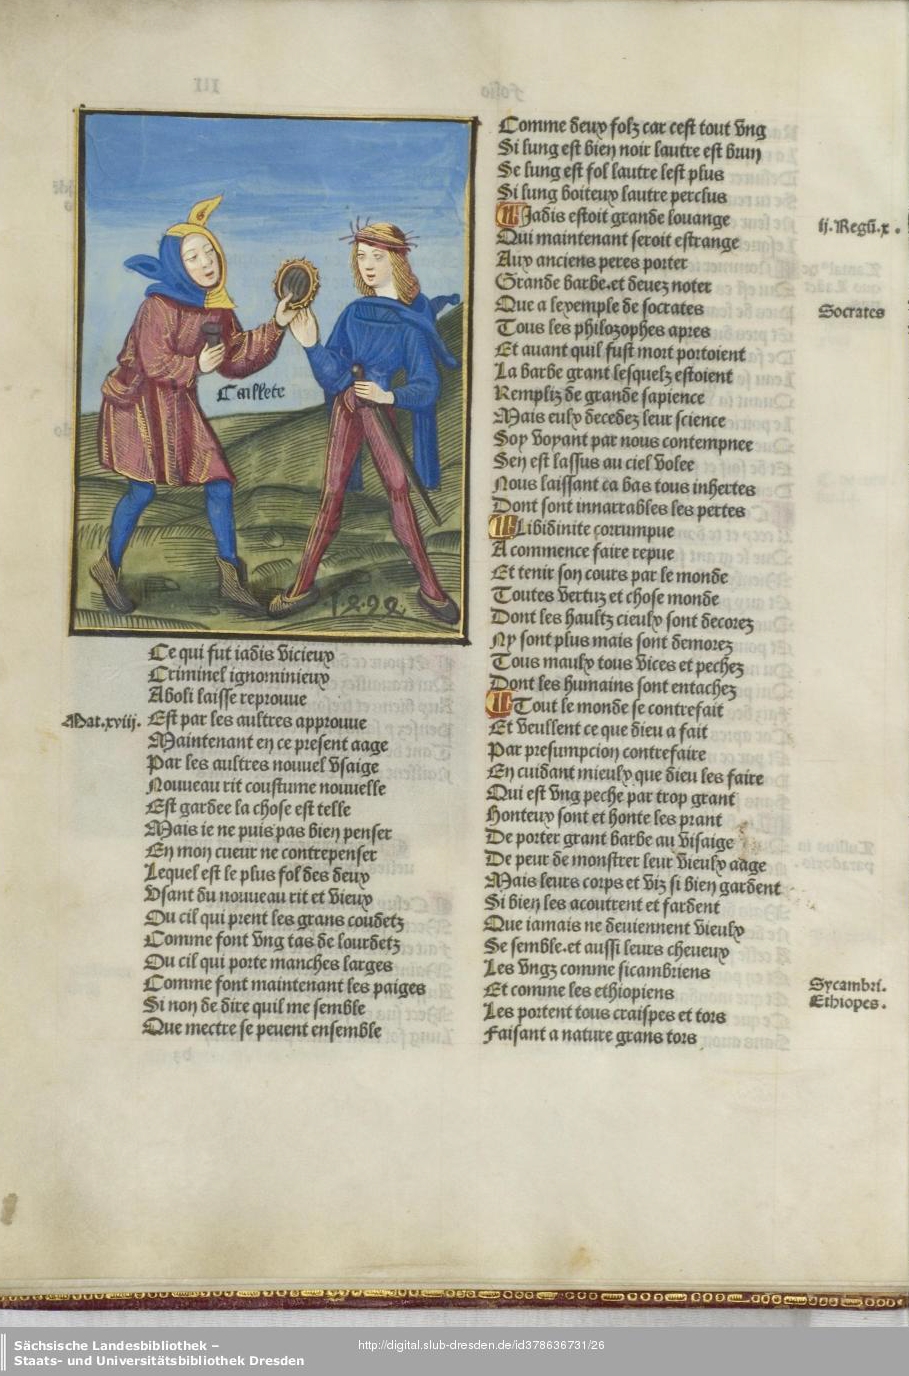 Caillete
.1.2.9.2.
Ce qui fut iadis vicieux
Criminel ignominieux
Aboli laisse reprouue
Mat.xviij.
Est par les aultres approuue
Maintenant en ce present aage
Par les aultres nouuel vsaige
Nouueau rit coustume nouuelle
Est gardee la chose est telle
Mais ie ne puis pas bien penser
En mon cueur ne contrepenser
Lequel est le plus fol des deux
Vsant du nouueau rit et vieux
Ou cil qui prent les grans coudetz
Comme font vng tas de lourdetz
Ou cil qui porte manches larges
Comme font maintenant les paiges
Si non de dire quil me semble
Que mectre se peuent ensemble
Comme deux folz car cest tout vng
Si lung est bien noir lautre est brun
Se lung est fol lautre lest plus
Si lung boiteux lautre perclus
Jadis estoit grande louange
ij.Regū.x.
Qui maintenant seroit estrange
Aux anciens peres porter
Grande barbe.et deuez noter
Que a lexemple de socrates
Socrates
Tous les philozophes apres
Et auant quil fust mort portoient
La barbe grant lesquelz estoient
Rempliz de grande sapience
Mais eulx decedez leur science
Soy voyant par nous contempnee
Sen est lassus au ciel volee
Nous laissant ca bas tous inhertes
Dont sont innarrables les pertes
Libidinite corrumpue
A commence faire repue
Et tenir son cours par le monde
Toutes vertuz et chose monde
Dont les haultz cieulx sont decorez
Ny sont plus mais sont demorez
Tous maulx tous vices et pechez
Dont les humains sont entachez
Tout le monde se contrefait
Et veullent ce que dieu a fait
Par presumpcion contrefaire
En cuidant mieulx que dieu les faire
Qui est vng peche par trop grant
Honteux sont et honte les prant
De porter grant barbe au visaige
De peur de monstrer leur vieulx aage
Mais leurs corps et viz si bien gardent
Si bien les acoutrent et fardent
Que iamais ne deuiennent vieulx
Se semble.et aussi leurs cheueux
Les vngz comme sicambriens
Sycambri.
Et comme les ethiopiens
Ethiopes.
Les portent tous craispes et tors
Faisant a nature grans tors
Sächsische Landesbibliothek –
Staats- und Universitätsbibliothek Dresden
http://digital.slub-dresden.de/id378636731/26